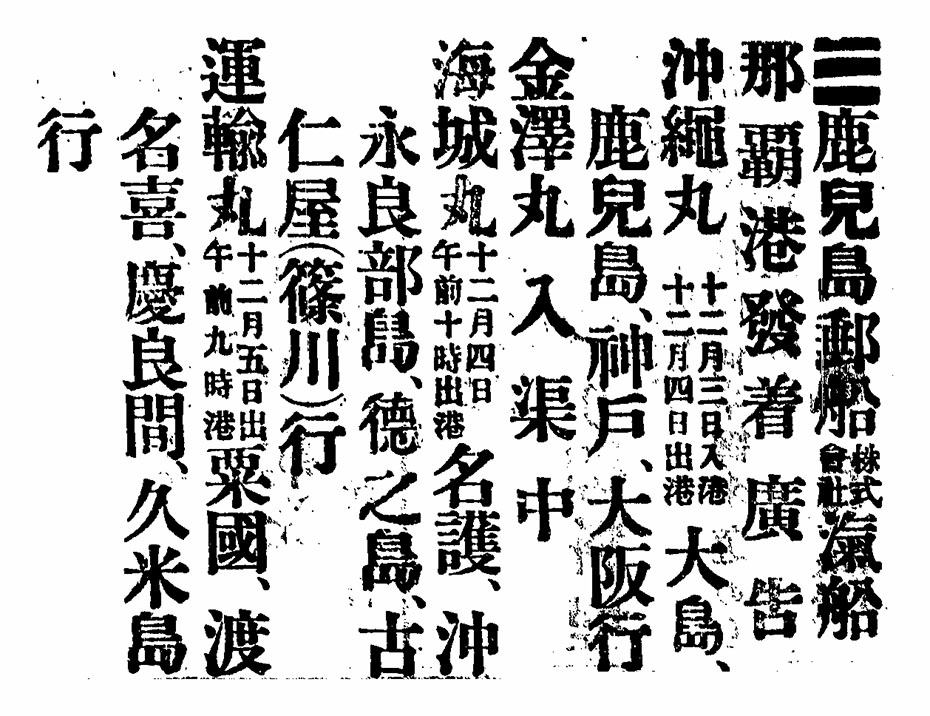 鹿兒島郵船株式會社滊船
那覇港發着廣告
沖繩丸十二月三日入港十二月四日出港大島、
鹿兒島、神戶、大阪行
金澤丸入渠中
海城丸十二月四日午前十時出港名護、沖
永良部島、德之島、古
仁屋(篠川)行
運輸丸十二月五日出午前九時港粟國、渡
名喜、慶良間、久米島
行